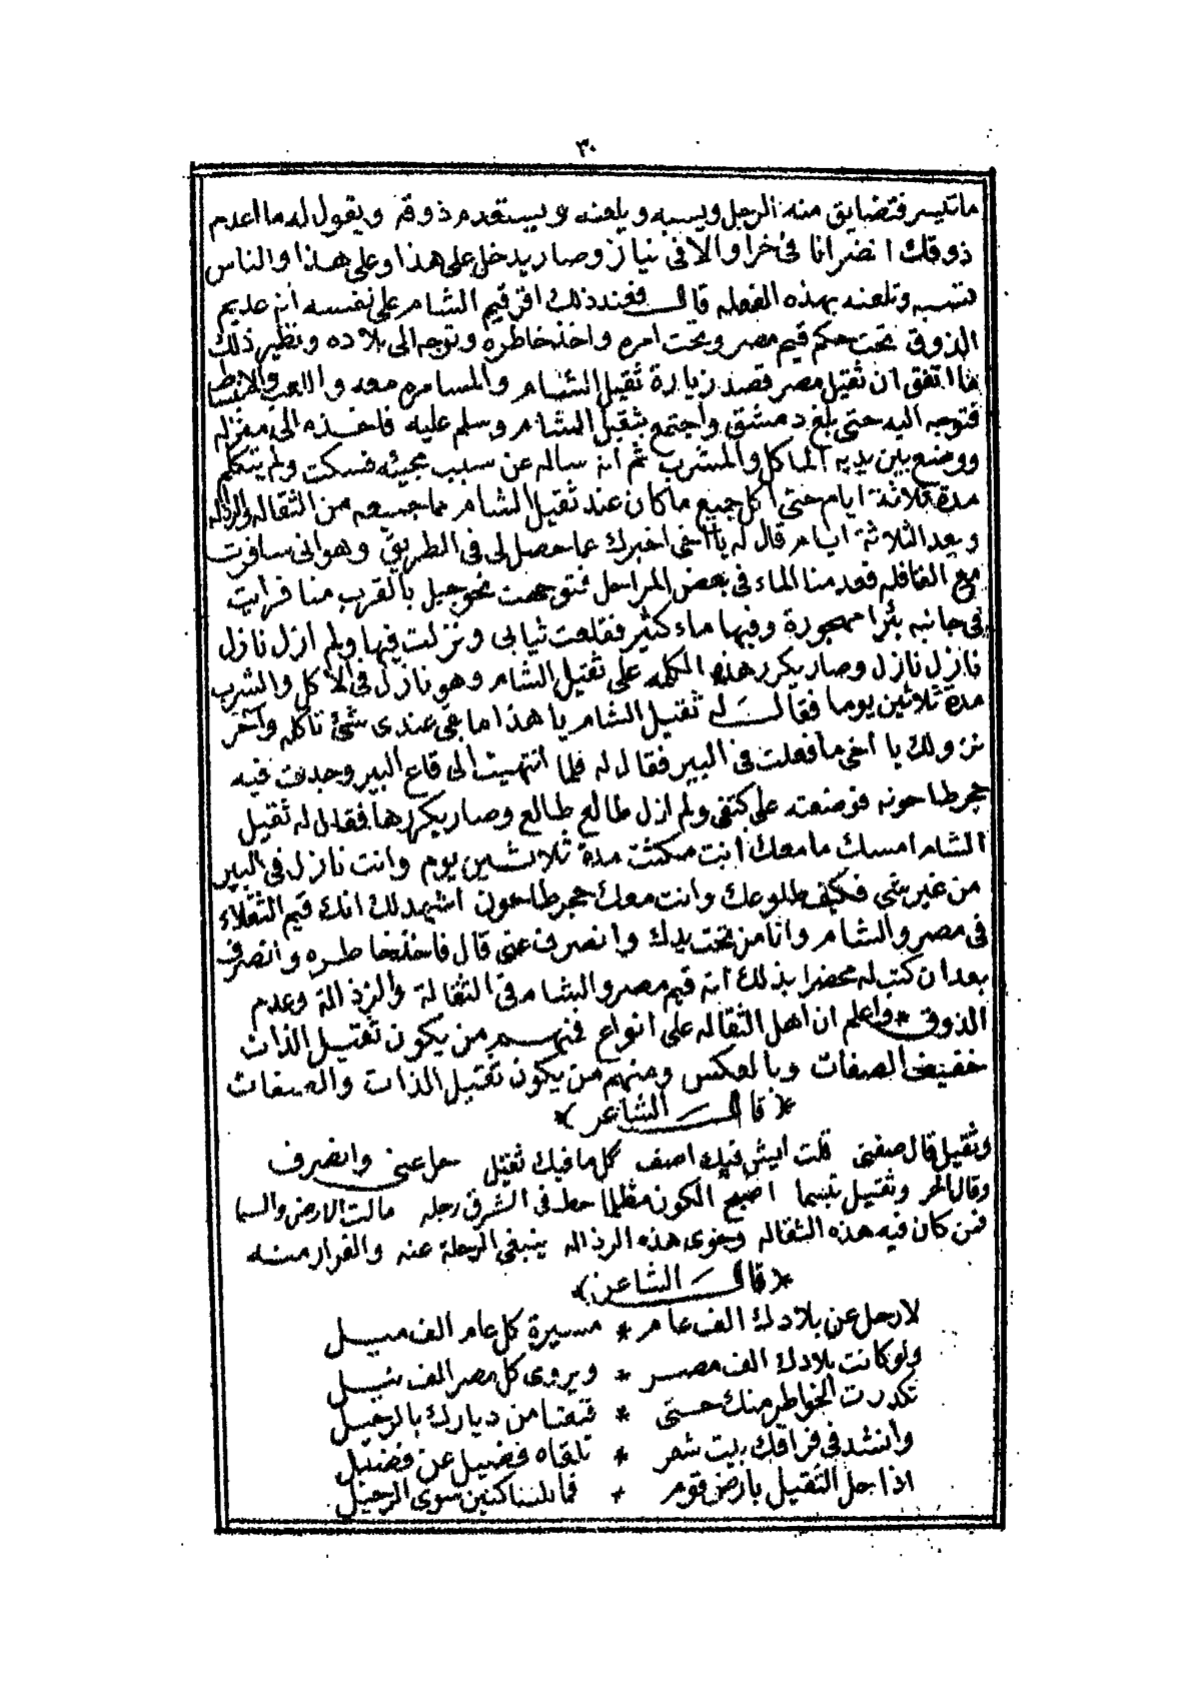 ٣٠
ما تيسر فتضايق منه الرجل ويسبه ويلعنه ويستعدم ذوقه ويقول له ما اعدم
ذوقك انضر انا في خرا والا في نياز وصار يدخل على هذا وعلى هذا والناس
تسبه وتلعنه بهذه الفعله قال فعند ذلك اقر قيم الشام على نفسه انه عديم
الذوق تحت حكم قيم مصر وتحت امره واخذ خاطره وتوجه الى بلاده ونظير ذلك
ما اتفق ان ثقيل مصر قصد زيارة ثقيل الشام والمسامره معه واللعب والانبساط
فتوجه اليه حتى بلغ دمشق واجتمع بثقيل الشام وسلم عليه فاخذه الى منزله
ووضع بين يديه الماكل والمشرب ثم انه ساله عن سبب مجيئه فسكت ولم يتكلم
مدة ثلاثة ايام حتى اكل جميع ما كان عند ثقيل الشام مما جمعه من الثقاله والرذاله
وبعد الثلاثة ايام قال له يا اخي اخبرك عما حصل لي في الطريق وهو اني سافرت
مع القافله فعدمنا الماء في بعض المراحل فتوجهت نحو جبل بالقرب منا فرايت
في جانبه بئرا مهجورة وفيها ماء كثير فقلعت ثيابي ونزلت فيها ولم ازل نازل
نازل نازل وصار يكرر هذه الكلمه على ثقيل الشام وهو نازل في الاكل والشرب
مدة ثلاثين يوما فقال له ثقيل الشام يا هذا ما بقي عندي شئ تاكله وآخر
نزولك يا اخي ما فعلت في البير فقال له فلما انتهيت الى قاع البير وجدت فيه
حجر طاحونه فوضعته على كتفي ولم ازل طالع طالع وصار يكررها فقال له ثقيل
الشام امسك ما معك انت مكثت مدة ثلاثين يوم وانت نازل في البير
من غير شي فكيف طلوعك وانت معك حجر طاحون اشهد لك انك قيم الثقلاء
في مصر والشام وانا من تحت يدك وانصرف عني قال فاخذ خاطره وانصرف
بعد ان كتب له محضرا بذلك انه قيم مصر والشام في الثقالة والرذالة وعدم
الذوق * واعلم ان اهل الثقاله على انواع فمنهم من يكون ثقيل الذات
خفيف الصفات وبالعكس ومنهم من يكون ثقيل الذات والصفات
* (قال الشاعر) *
وثقيل قال صفني قلت ايش فيك اصف كل ما فيك ثقيل حل عني وانصرف
وقال اخر وثقيل تبسما اصبح الكون مظلما حط في الشرق رجله مالت الارض والسما
فمن كان فيه هذه الثقاله وحوى هذه الرذاله ينبغي الرحلة عنه والفرار منه
* (قال الشاعر) *
لارحل عن بلادك الف عام * مسيرة كل عام الف ميل
ولو كانت بلادك الف مصر * ويروى كل مصر الف نيل
تكدرت الخواطر منك حتى * قنعنا من ديارك بالرحيل
وانشد في فراقك بيت شعر * تلقاه فضيل عن فضيل
اذا حل الثقيل بارض قوم * فما للساكنين سوى الرحيل